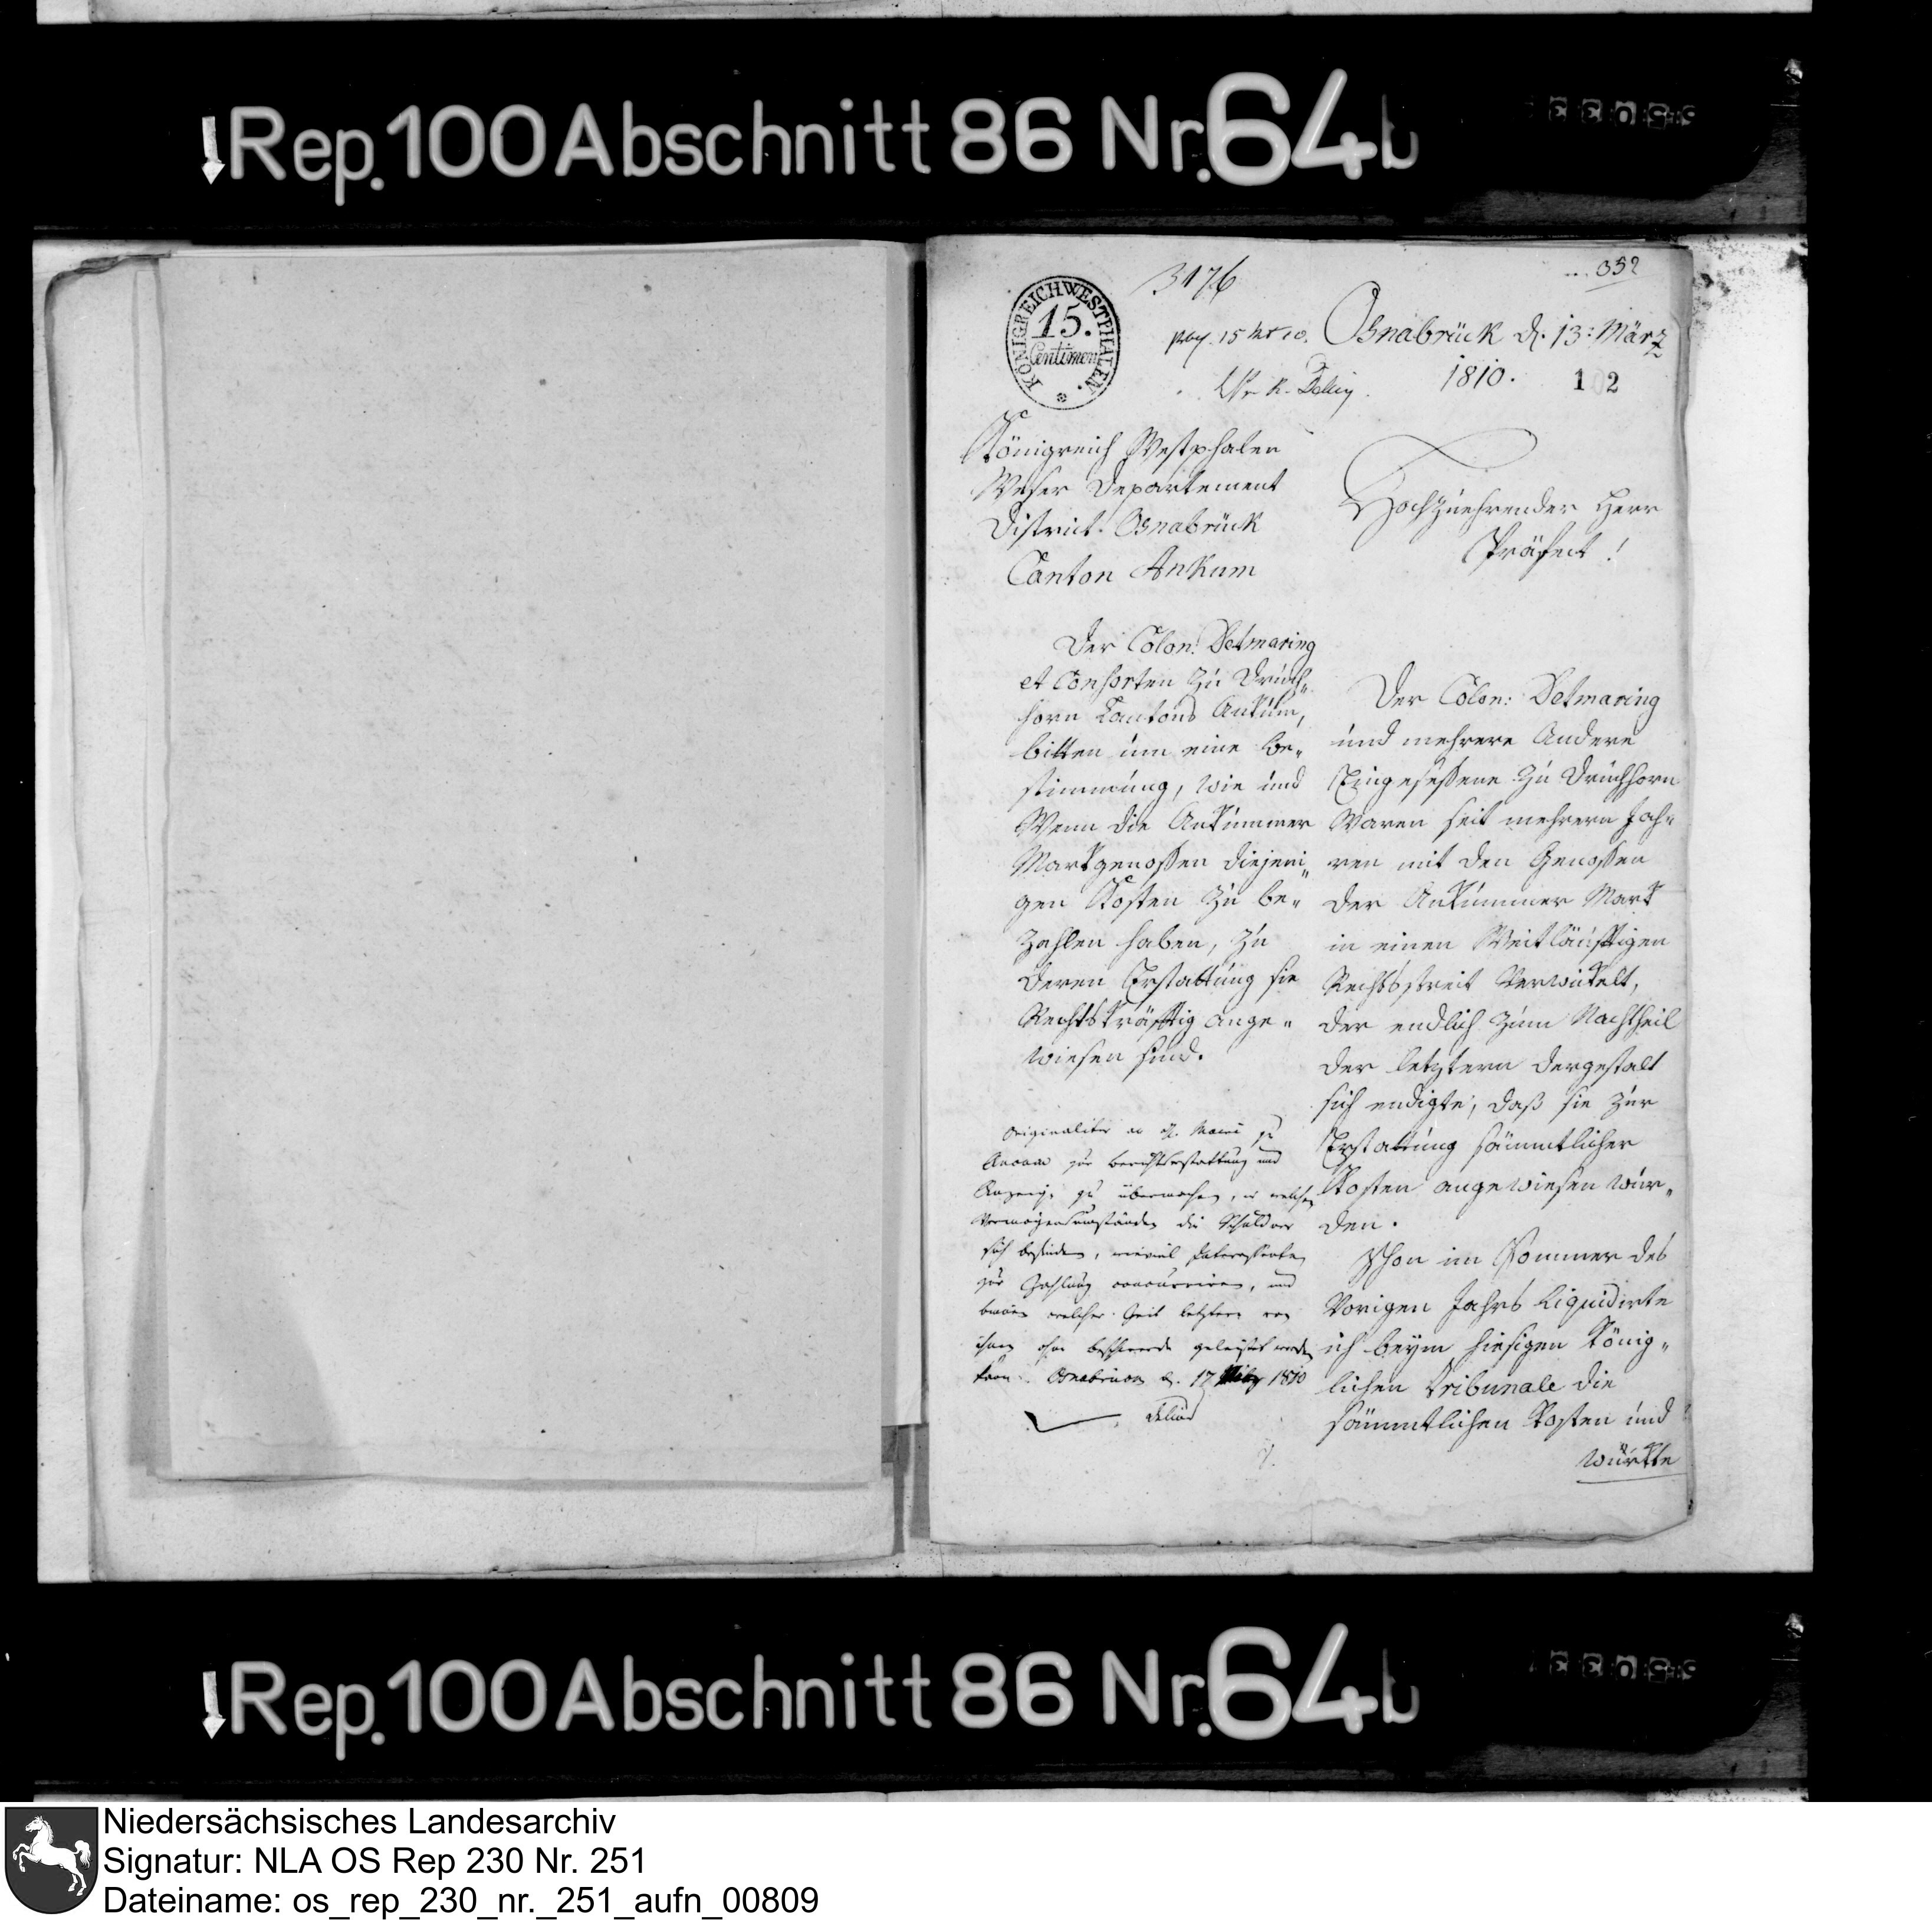 Rep. 100 Abschnitt 86 Nr. 64b
3176
352
KÖNIGREICH WESTPHALEN.
15.
Centimen
Osnabrück d. 13: März
1810.
102
Königreich Westphalen
Weser Departement
District Osnabrück
Canton Ankum
Hochzuehrender Herr
Präfect!
Der Colon: Detmaring
et Consorten zu Drüch„
horn Cantons Ankum,
bitten um eine be„
stimmung, wie und
Wenn die Ankummer
Markgenoßen diejeni„
gen Kosten zu be„
zahlen haben, zu
deren Erstattung sie
Rechtskräfftig ange„
wiesen sind.
Originaliter an H. Maire zu
Ancum zur Berichtserstattung und
Anzeige zu übermachen, in welchen
Vermögensumständen die Schuldner
sich befinden, wieviel Interessenten
zur Zahlung concurriren, und
binnen welcher Zeit letztere von
ihnen ohne beschwerde geleistet werden
kann. Osnabrück d. 17 März 1810
Der Colon: Detmaring
und mehrere Andere
Eingeseßene zu Drüchhorn
Waren seit mehrern Jah„
ren mit den Genoßen
der Ankummer Mark
in einen Weitläufftigen
Rechtsstreit Verwickelt,
der endlich zum Nachtheil
der letztern dergestalt
sich endigte, daß sie zur
Erstattung sämmtlicher
Kosten angewiesen wur„
den.
Schon im Sommer des
Vorigen Jahrs liquidirte
ich beym hiesigen König„
lichen Tribunale die
sämmtlichen Kosten und
würkte
Rep. 100 Abschnitt 86 Nr. 64b
Niedersächsisches Landesarchiv
Signatur: NLA OS Rep 230 Nr. 251
Dateiname: os_rep_230_nr._251_aufn_00809